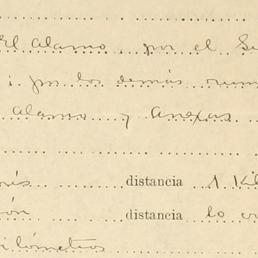 El Alamo, por el Su
i por los demás rum
Alamo y anexas
distancia 1 Kil
ón distancia lo
ilómetros